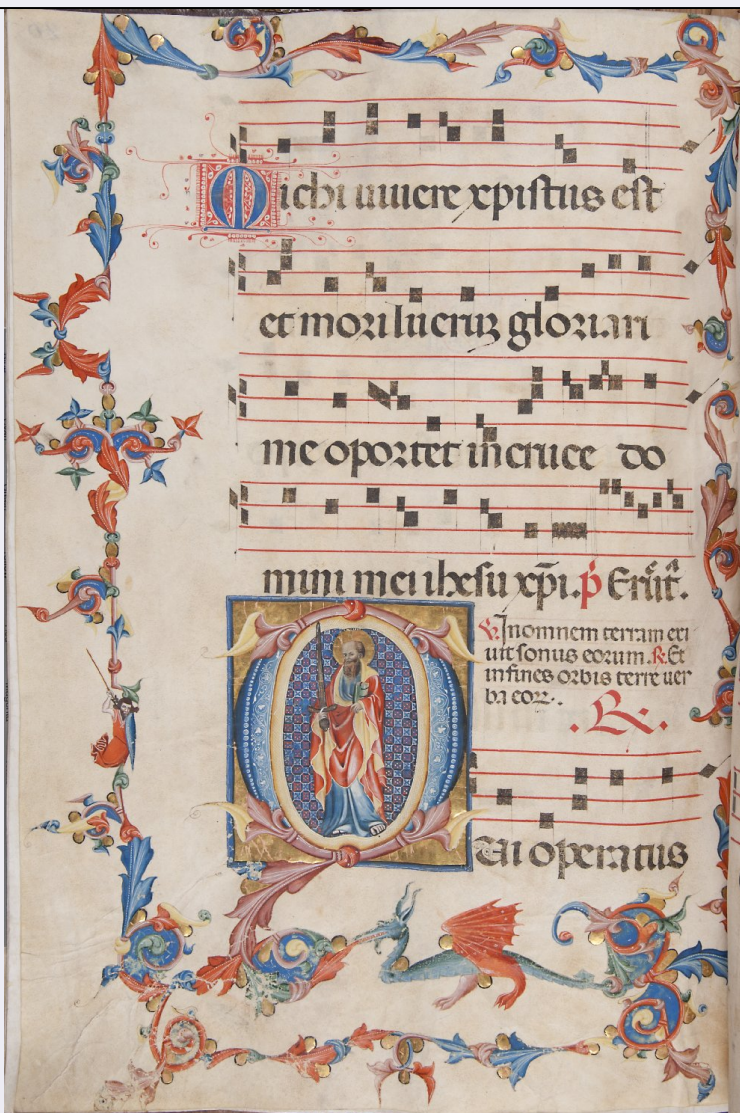 Michi uiuere xpistus est
et mori lucrum gloriari
me oportet in cruce do
mini mei ihesu xp̄i. p̄
V. In omnem terram exi
uit sonus eorum. R. Et
in fines orbis terre uer
ba eoꝝ.
R.
Qui operatus